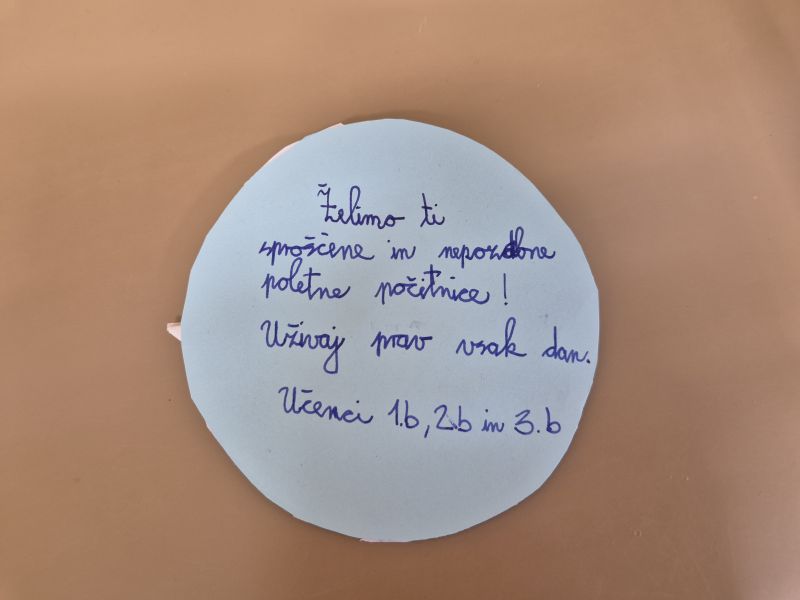 Želimo ti
sproščene in nepozabne
poletne počitnice!
Uživaj prav vsak dan.
Učenci 1.b, 2.b in 3.b